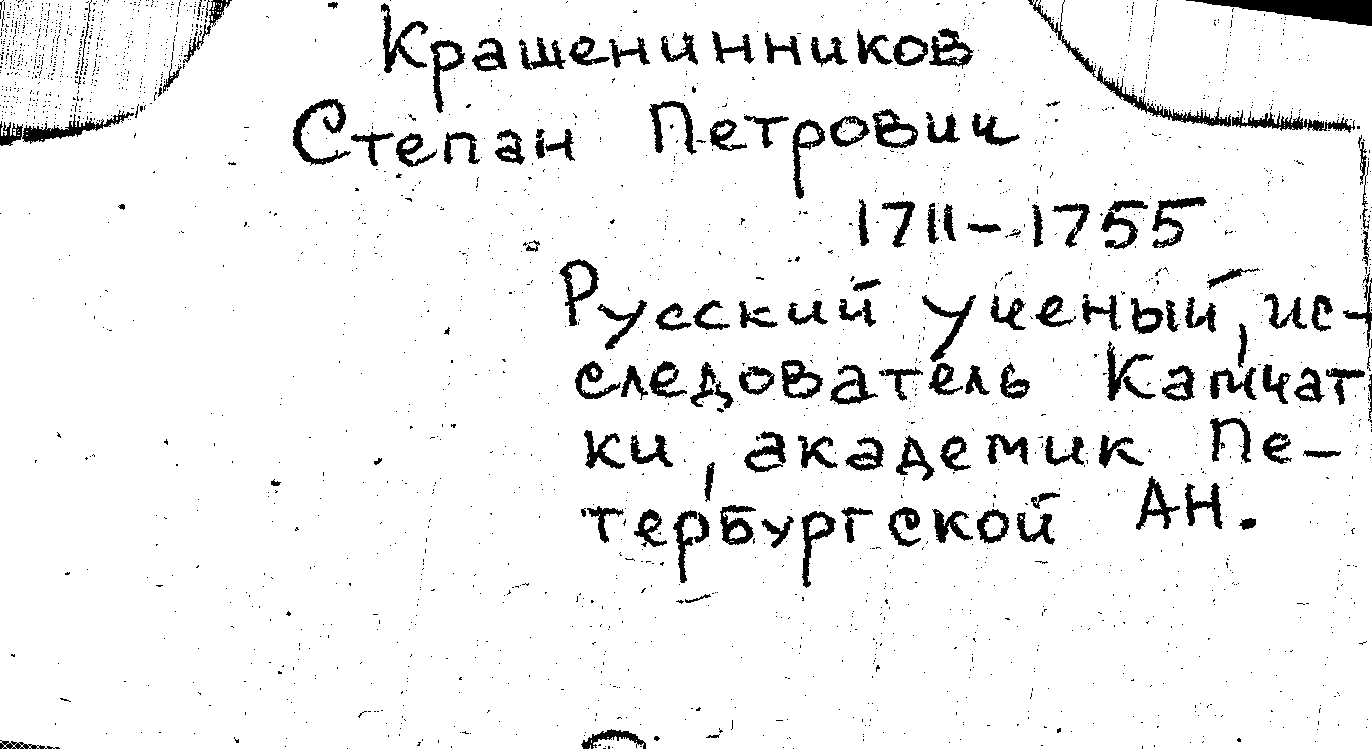 Крашенинников
Степан Петрович
1711-1755
Русский ученый, ис-
следователь Камчат
ки, академик Пе-
тербургской АН.